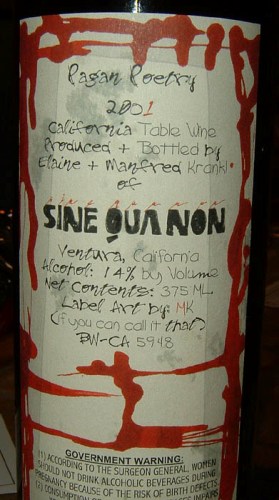 Pagan Poetry
2001
California Table Wine
Produced + Bottled by
Elaine + Manfred Krankl
of
SINE QUA NON
SINE QUA NON
Ventura, California
Alcohol: 14% by Volume
Net Contents: 375 ML.
Label Art by: MK
(if you can call it that)
BW-CA 5948
GOVERNMENT WARNING:
(1) ACCORDING TO THE SURGEON GENERAL, WOMEN
SHOULD NOT DRINK ALCOHOLIC BEVERAGES DURING
PREGNANCY BECAUSE OF THE RISK OF BIRTH DEFECTS.
(2) CONSUMPTION